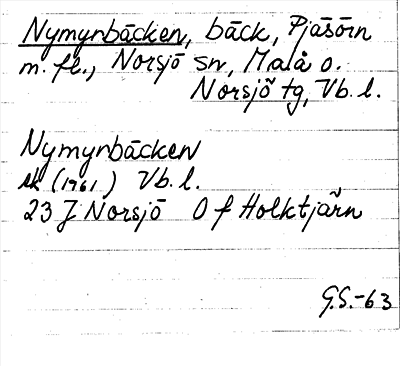 Nymyrbäcken, bäck, Pjäsörn
m. fl., Norsjö sn, Malå o.
Norsjö tg, Vb. l.
Nymyrbäcken
ek (1961) Vb. l.
23 J Norsjö O f Holktjärn
G.S.-63